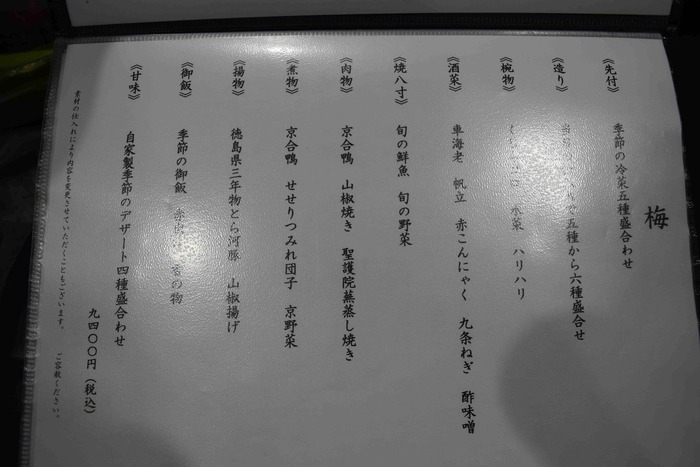 梅
《先付》 季節の冷菜五種盛合わせ
《造り》 五種から六種盛合せ
《椀物》 水菜 ハリハリ
《酒菜》 車海老 帆立 赤こんにゃく 九条ねぎ 酢味噌
《焼八寸》 旬の鮮魚 旬の野菜
《肉物》 京合鴨 山椒焼き 聖護院蕪蒸し焼き
《煮物》 京合鴨 せせりつみれ団子 京野菜
《揚物》 徳島県三年物とら河豚 山椒揚げ
《御飯》 季節の御飯 赤出 の物
《甘味》 自家製季節のデザート四種盛合わせ
九四〇〇円（税込）
素材の仕入れにより内容を変更させていただくこともございます。 ご容赦ください。